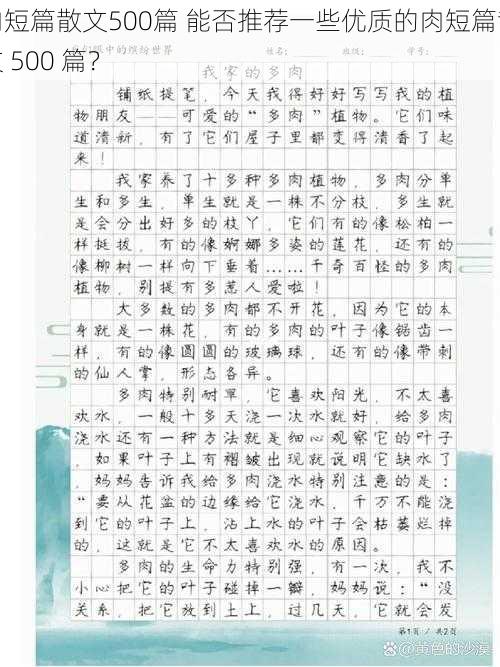 短篇散文500篇 能否推荐一些优质的肉短篇
500 篇？
眼中的缤纷世界 姓名： 班级： 学号：
我家的多肉
铺纸提笔，今天我得好好写写我的植
物朋友——可爱的“多肉”植物。它们味
道清新，有了它们屋子里都变得清香了起
来！
我家养了十多种多肉植物，多肉分单
生和多生，单生就是一株不分枝，多生就
是会分出好多的枝丫，它们有的像松柏一
样挺拔，有的像婀娜多姿的莲花，还有的
像柳树一样向下垂着……千奇百怪的多肉
植物，别提有多惹人爱啦！
大多数的多肉都不开花，因为它的本
身就是一株花，有的多肉的叶子像锯齿一
样，有的像圆圆的玻璃球，还有的像带刺
的仙人掌，形态各异。
多肉特别耐旱，它喜欢阳光，不太喜
欢水，一般十多天浇一次水就好，给多肉
浇水还有一种方法就是细心观察它的叶子
，如果叶子上有褶皱出现就说明它缺水了
，妈妈告诉我给多肉浇水特别注意的是：
“要从花盆的边缘给它浇水，千万不能浇
到它的叶子上，沾上水的叶子会枯萎烂掉
的，这就是它不太喜欢水的原因。
多肉的生命力特别强，有一次，我不
小心把它的叶子碰掉一瓣，妈妈说：“没
关系，把它放到土上，过几天，它就会发
第1页 / 共2页
@黄色的沙漠